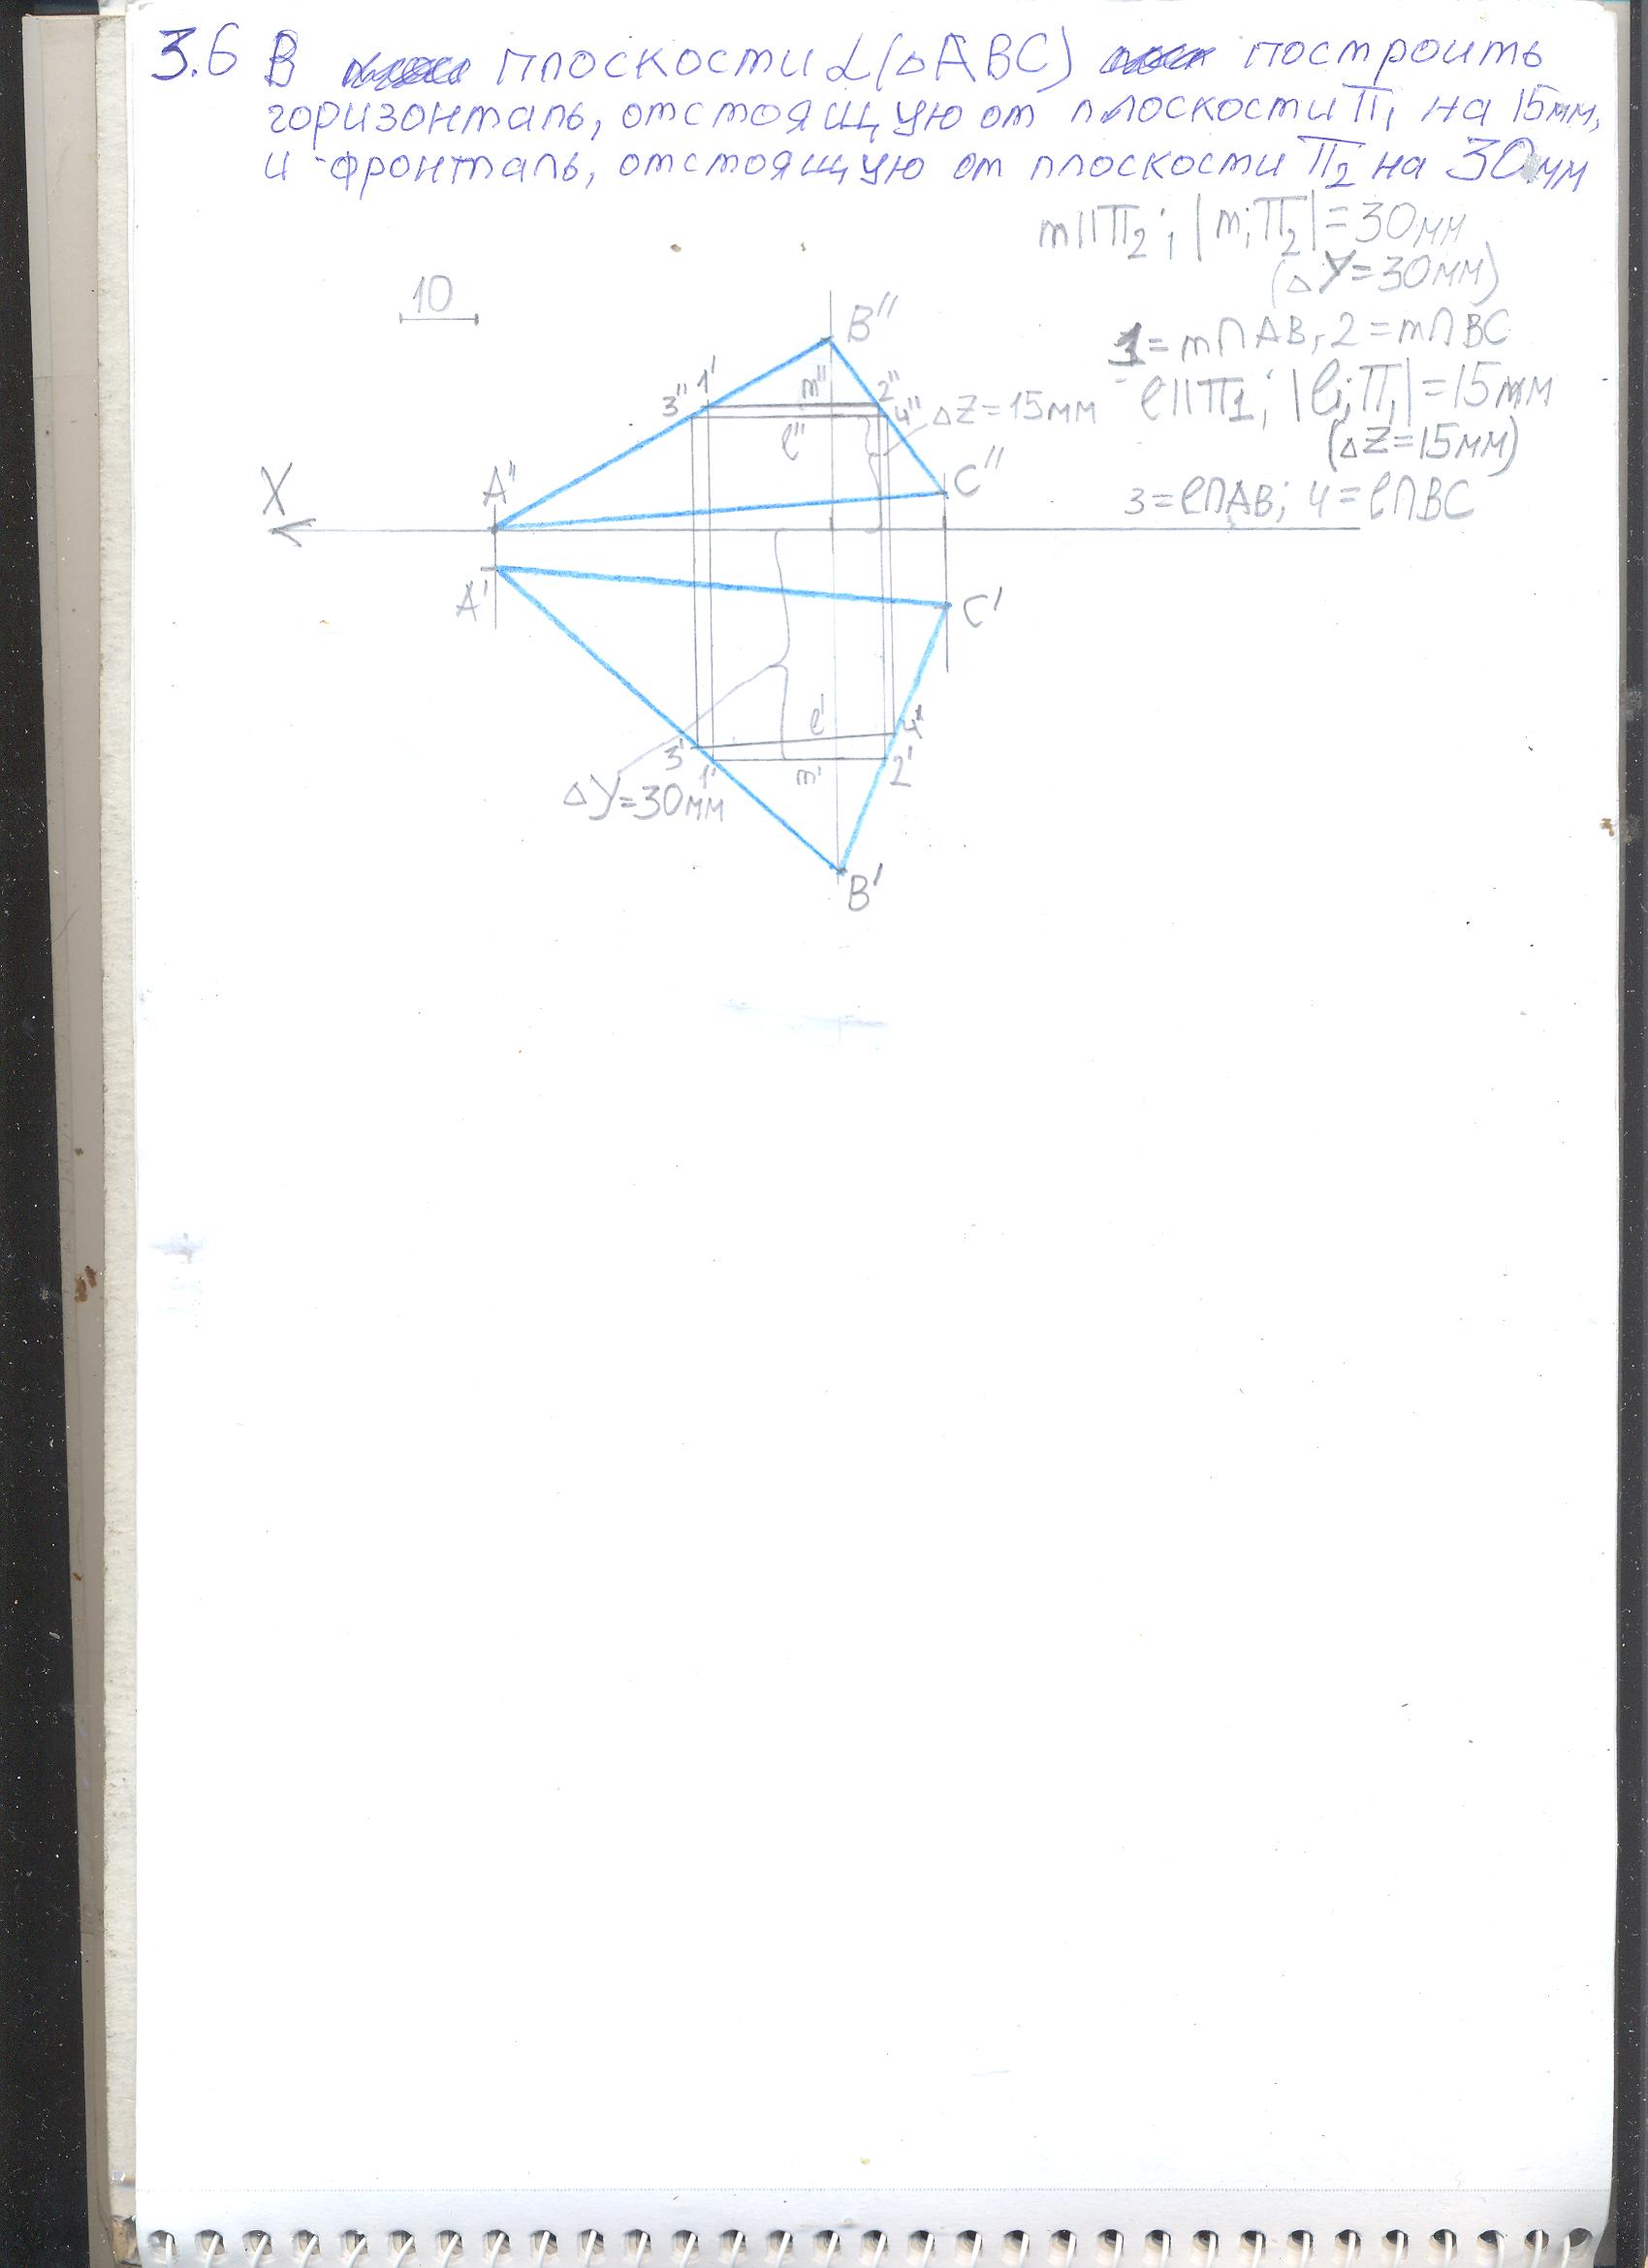 3.6 В плоскости α(△ABC) построить
горизонталь, отстоящую от плоскости П₁ на 15мм,
и фронталь, отстоящую от плоскости П₂ на 30мм
m||П₂; |m;П₂|=30мм
(△Y=30мм)
1=m∩AB, 2=m∩BC
l||П1; |l;П₁|=15мм
(△Z=15мм)
3=l∩AB; 4=l∩BC
10
B''
3'' 1' m'' 2'' 4'' △Z=15мм
l''
X A'' C''
A' C'
l' 4'
3' 1' m' 2'
△Y=30мм
B'